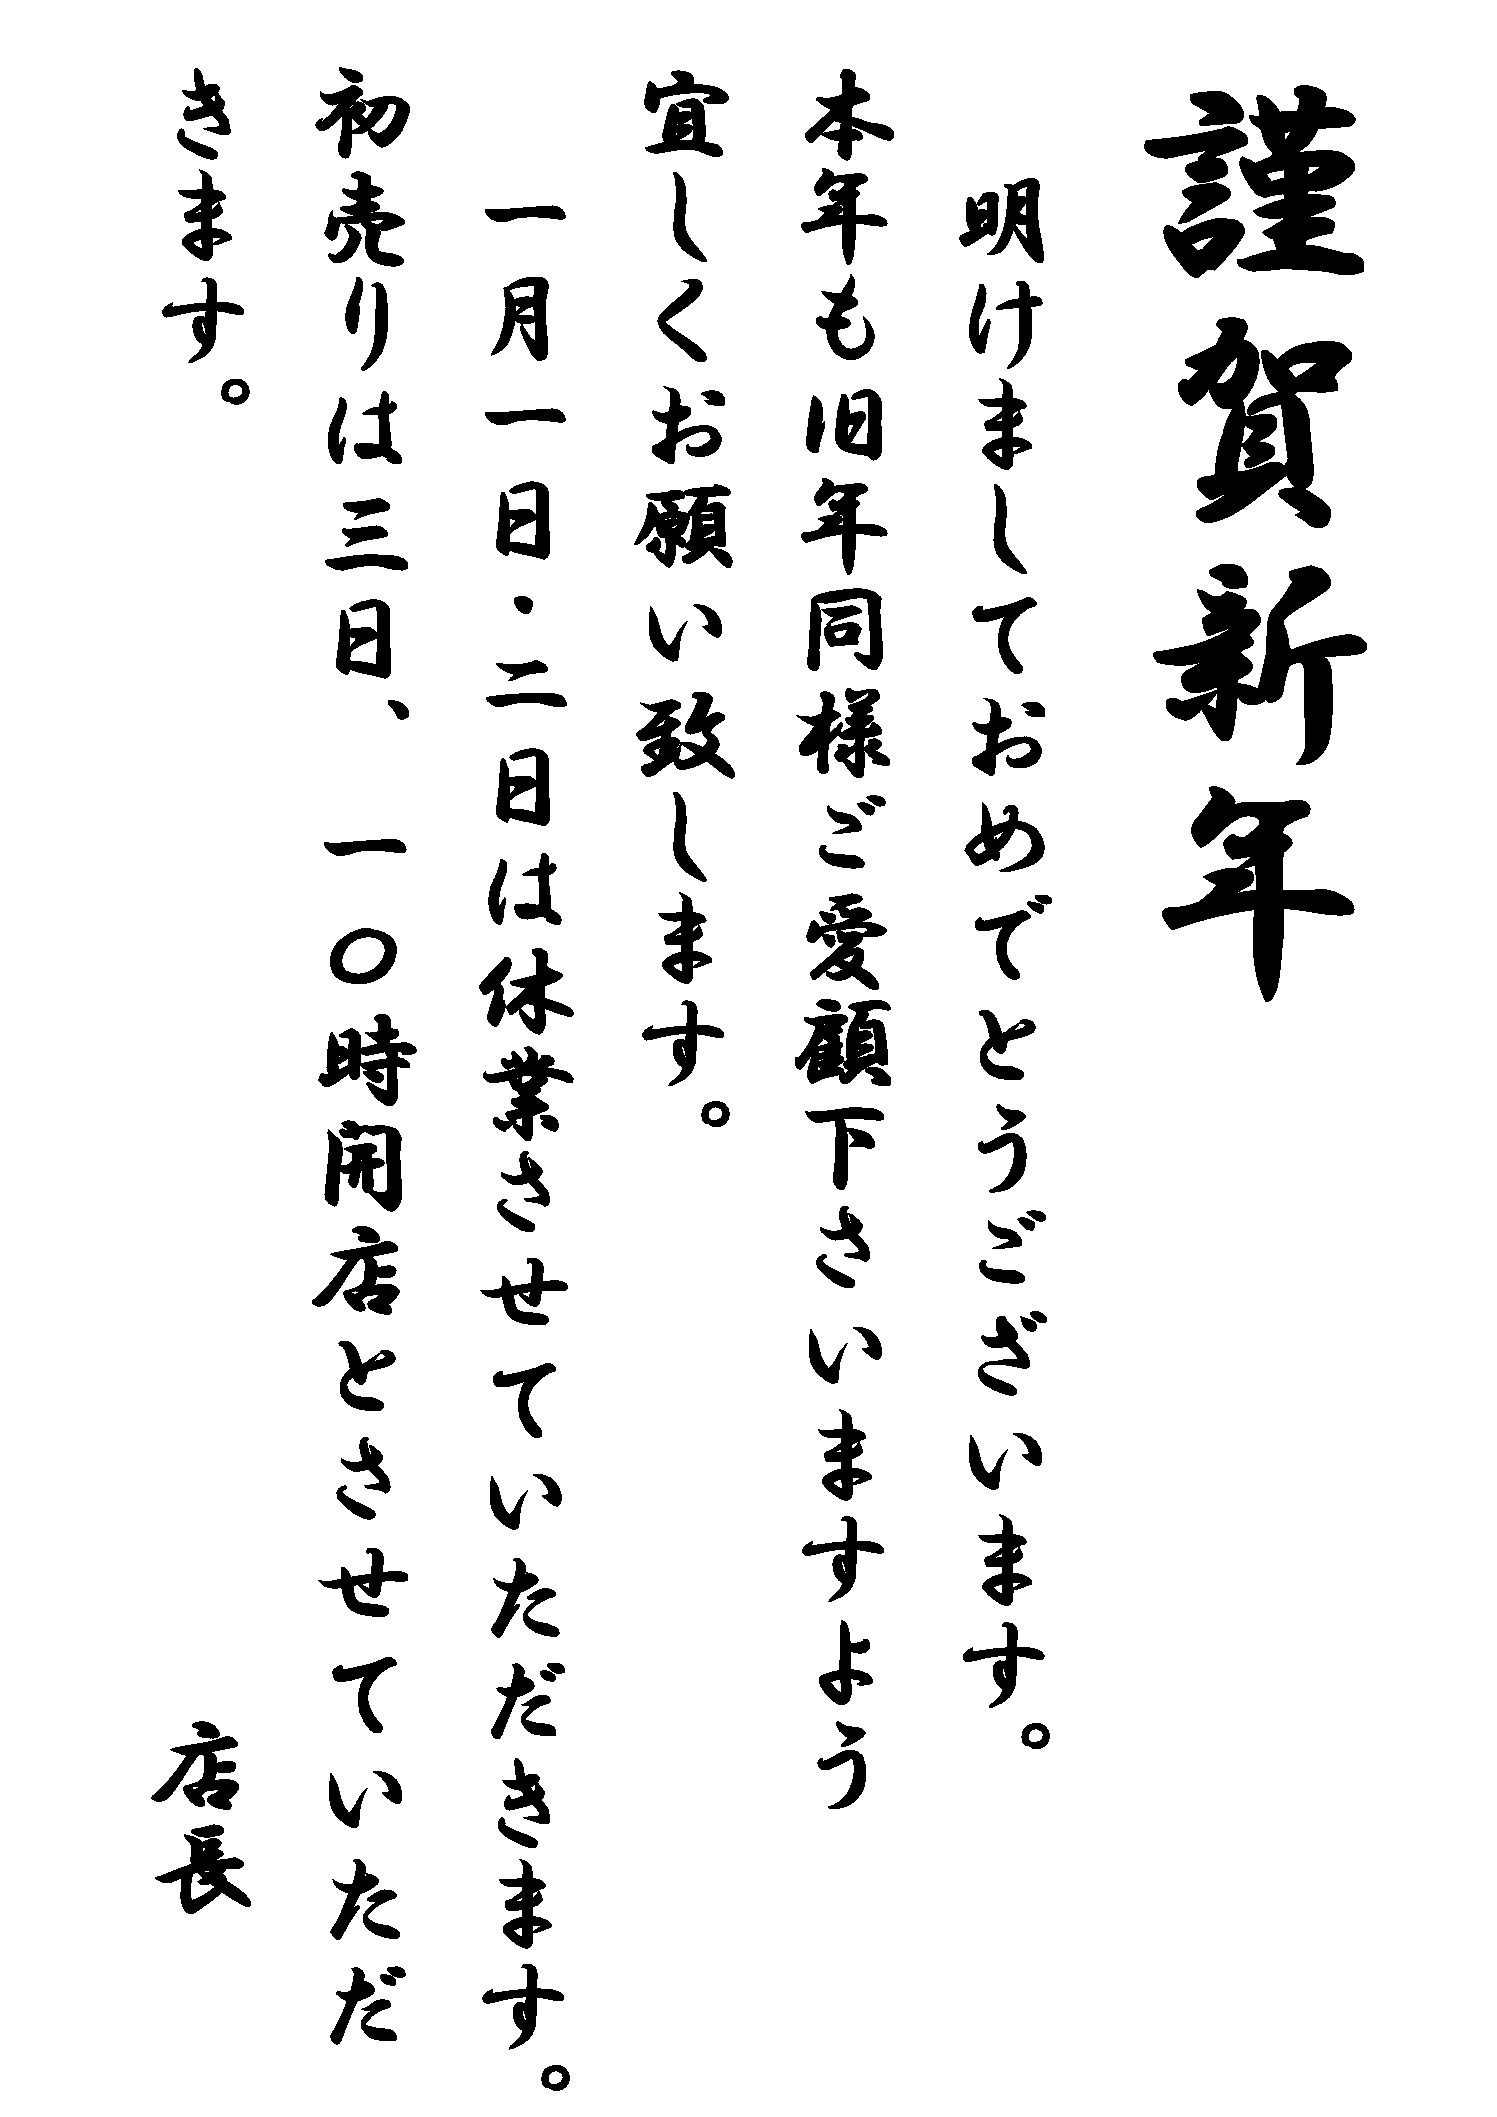 謹賀新年
明けましておめでとうございます。
本年も旧年同様ご愛顧下さいますよう
宜しくお願い致します。
一月一日・二日は休業させていただきます。
初売りは三日、一〇時開店とさせていただ
きます。
店長